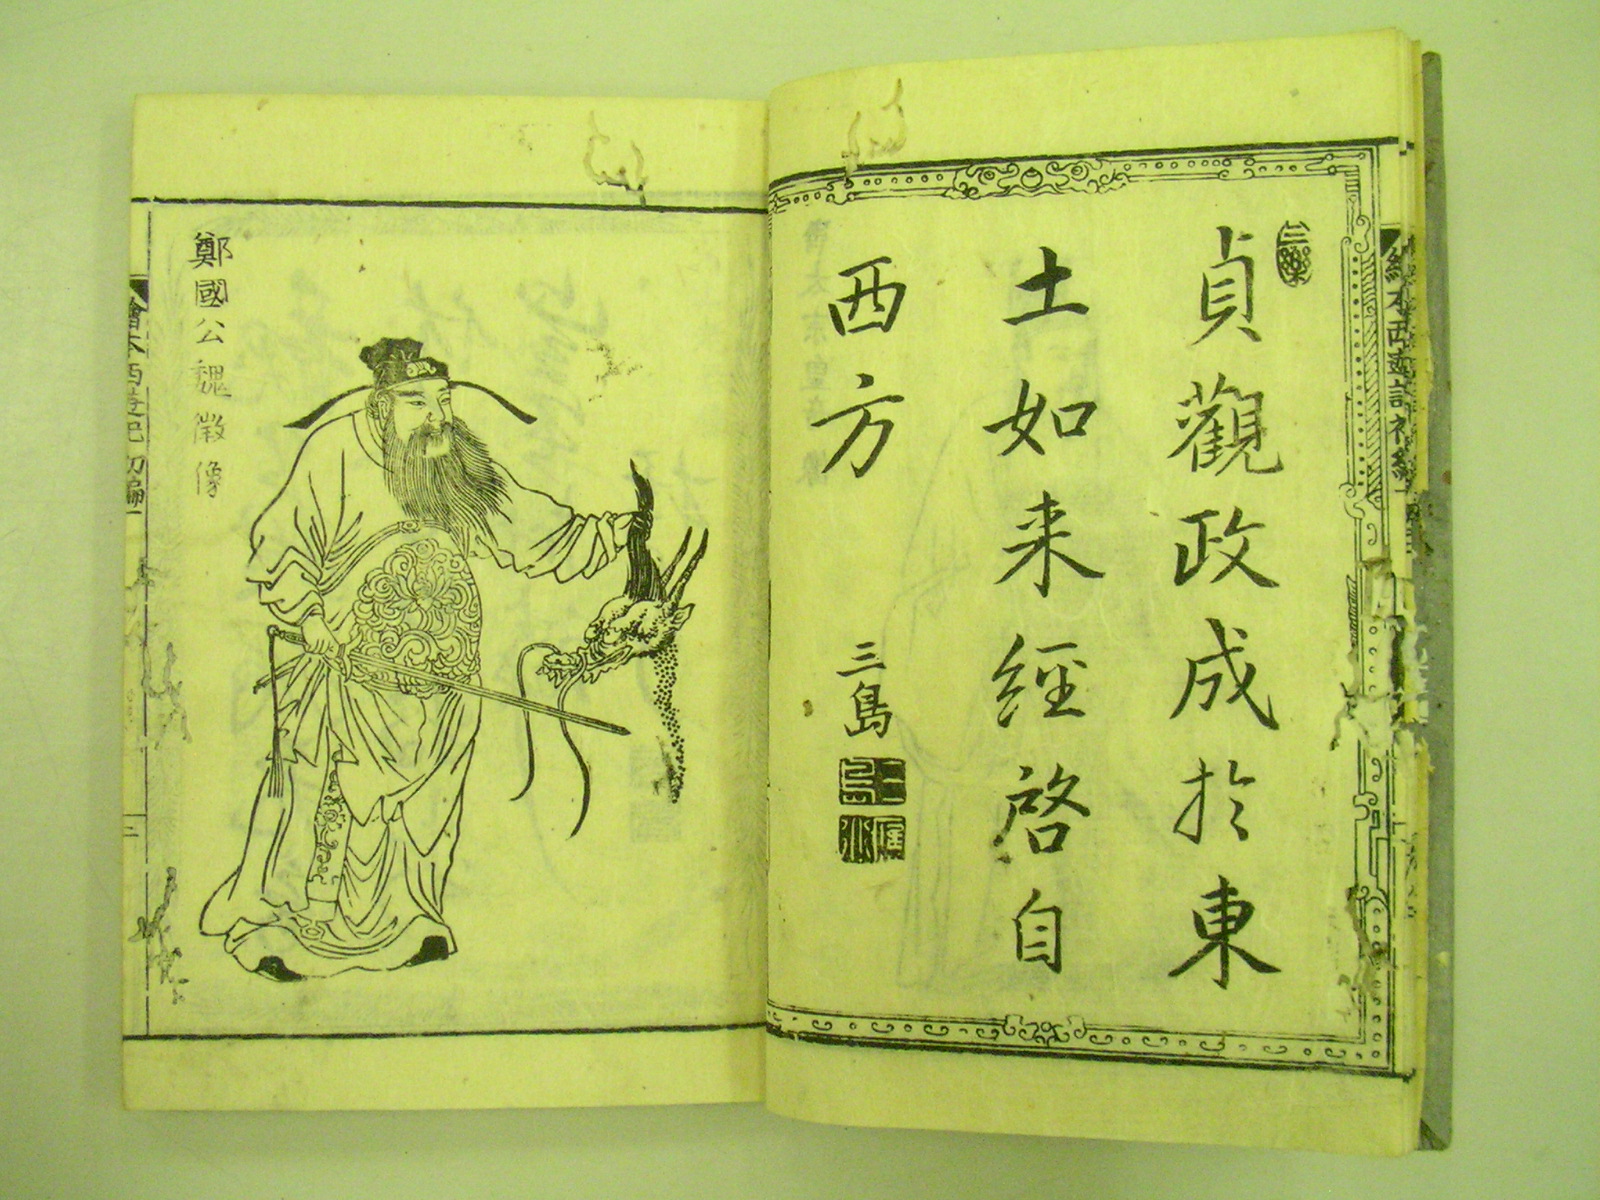 繪本西遊記初編
三樂
貞觀政成於東
土如来經啓自
西方
三島
鄭國公魏徴像
繪本西遊記初編一
二